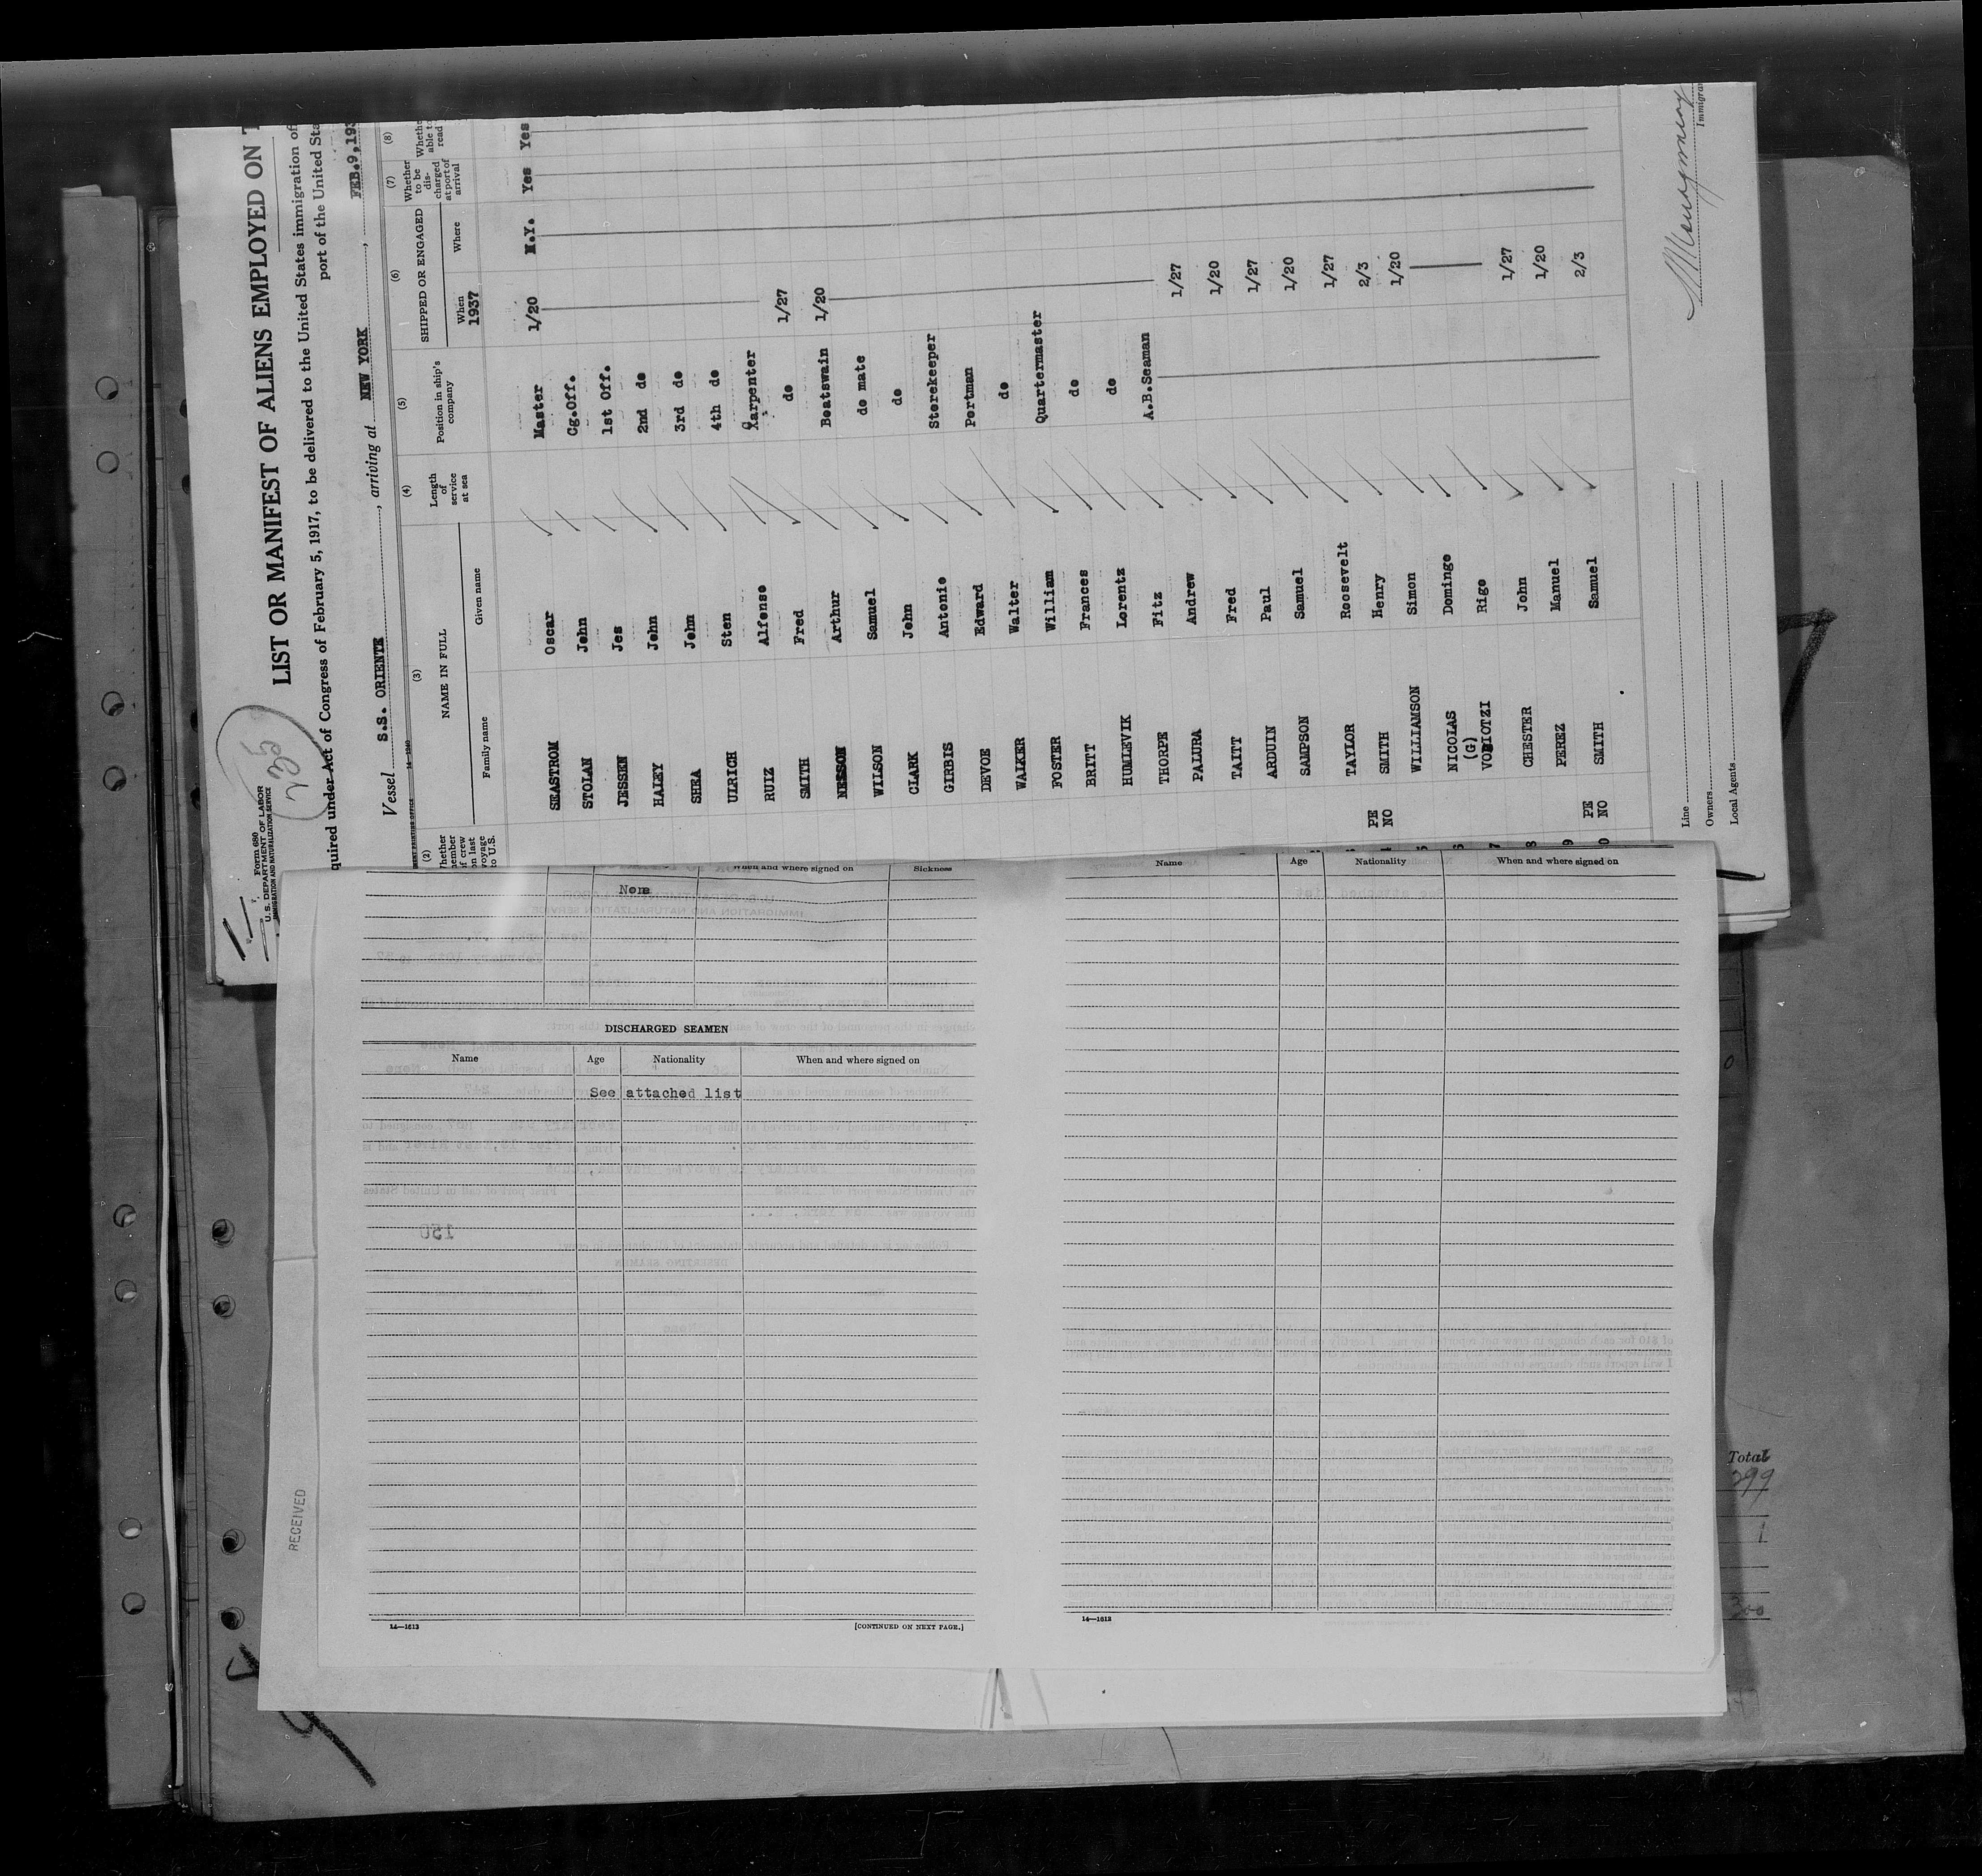 Form 680
U. S. DEPARTMENT OF LABOR
IMMIGRATION AND NATURALIZATION SERVICE
LIST OR MANIFEST OF ALIENS EMPLOYED ON
quired under Act of Congress of February 5, 1917, to be delivered to the United States immigration
port of the United
Vessel S.S. ORIENTE, arriving at NEW YORK, FEB.9,193
(2) (3) (4) (5) (6) (7) (8)
NAME IN FULL
Family name Given name
Length of service at sea
Position in ship's company
SHIPPED OR ENGAGED
When 1937 Where
Whether to be discharged at port of arrival
able to read
SEASTROM Oscar Master 1/20 N.Y. Yes Yes
STOLAN John Cg.Off.
JESSEN Jes 1st Off.
HALEY John 2nd do
SHEA John 3rd do
ULRICH Sten 4th do
RUIZ Alfonso Carpenter
SMITH Fred do 1/27
NESSON Arthur Boatswain 1/20
WILSON Samuel do mate
CLARK John do
GIRBIS Antonio Storekeeper
DEVOE Edward Portman
WALKER Walter do
FOSTER William Quartermaster
BRITT Frances do
HUMLEVIK Lorentz do
THORPE Fitz A.B.Seaman
PALURA Andrew 1/27
TAITT Fred 1/20
ARDUIN Paul 1/27
SAMPSON Samuel 1/20
TAYLOR Roosevelt 1/27
PE
NO SMITH Henry 2/3
WILLIAMSON Simon 1/20
NICOLAS Domingo
(G)
VOZIOTZI Rigo
CHESTER John 1/27
PEREZ Manuel 1/20
PE
NO SMITH Samuel 2/3
Line
Owners
Local Agents
When and where signed on Sickness
None
DISCHARGED SEAMEN
Name Age Nationality When and where signed on
See attached list
14—1613
[CONTINUED ON NEXT PAGE.]
Name Age Nationality When and where signed on
14—1613
RECEIVED
Total
299
1
300